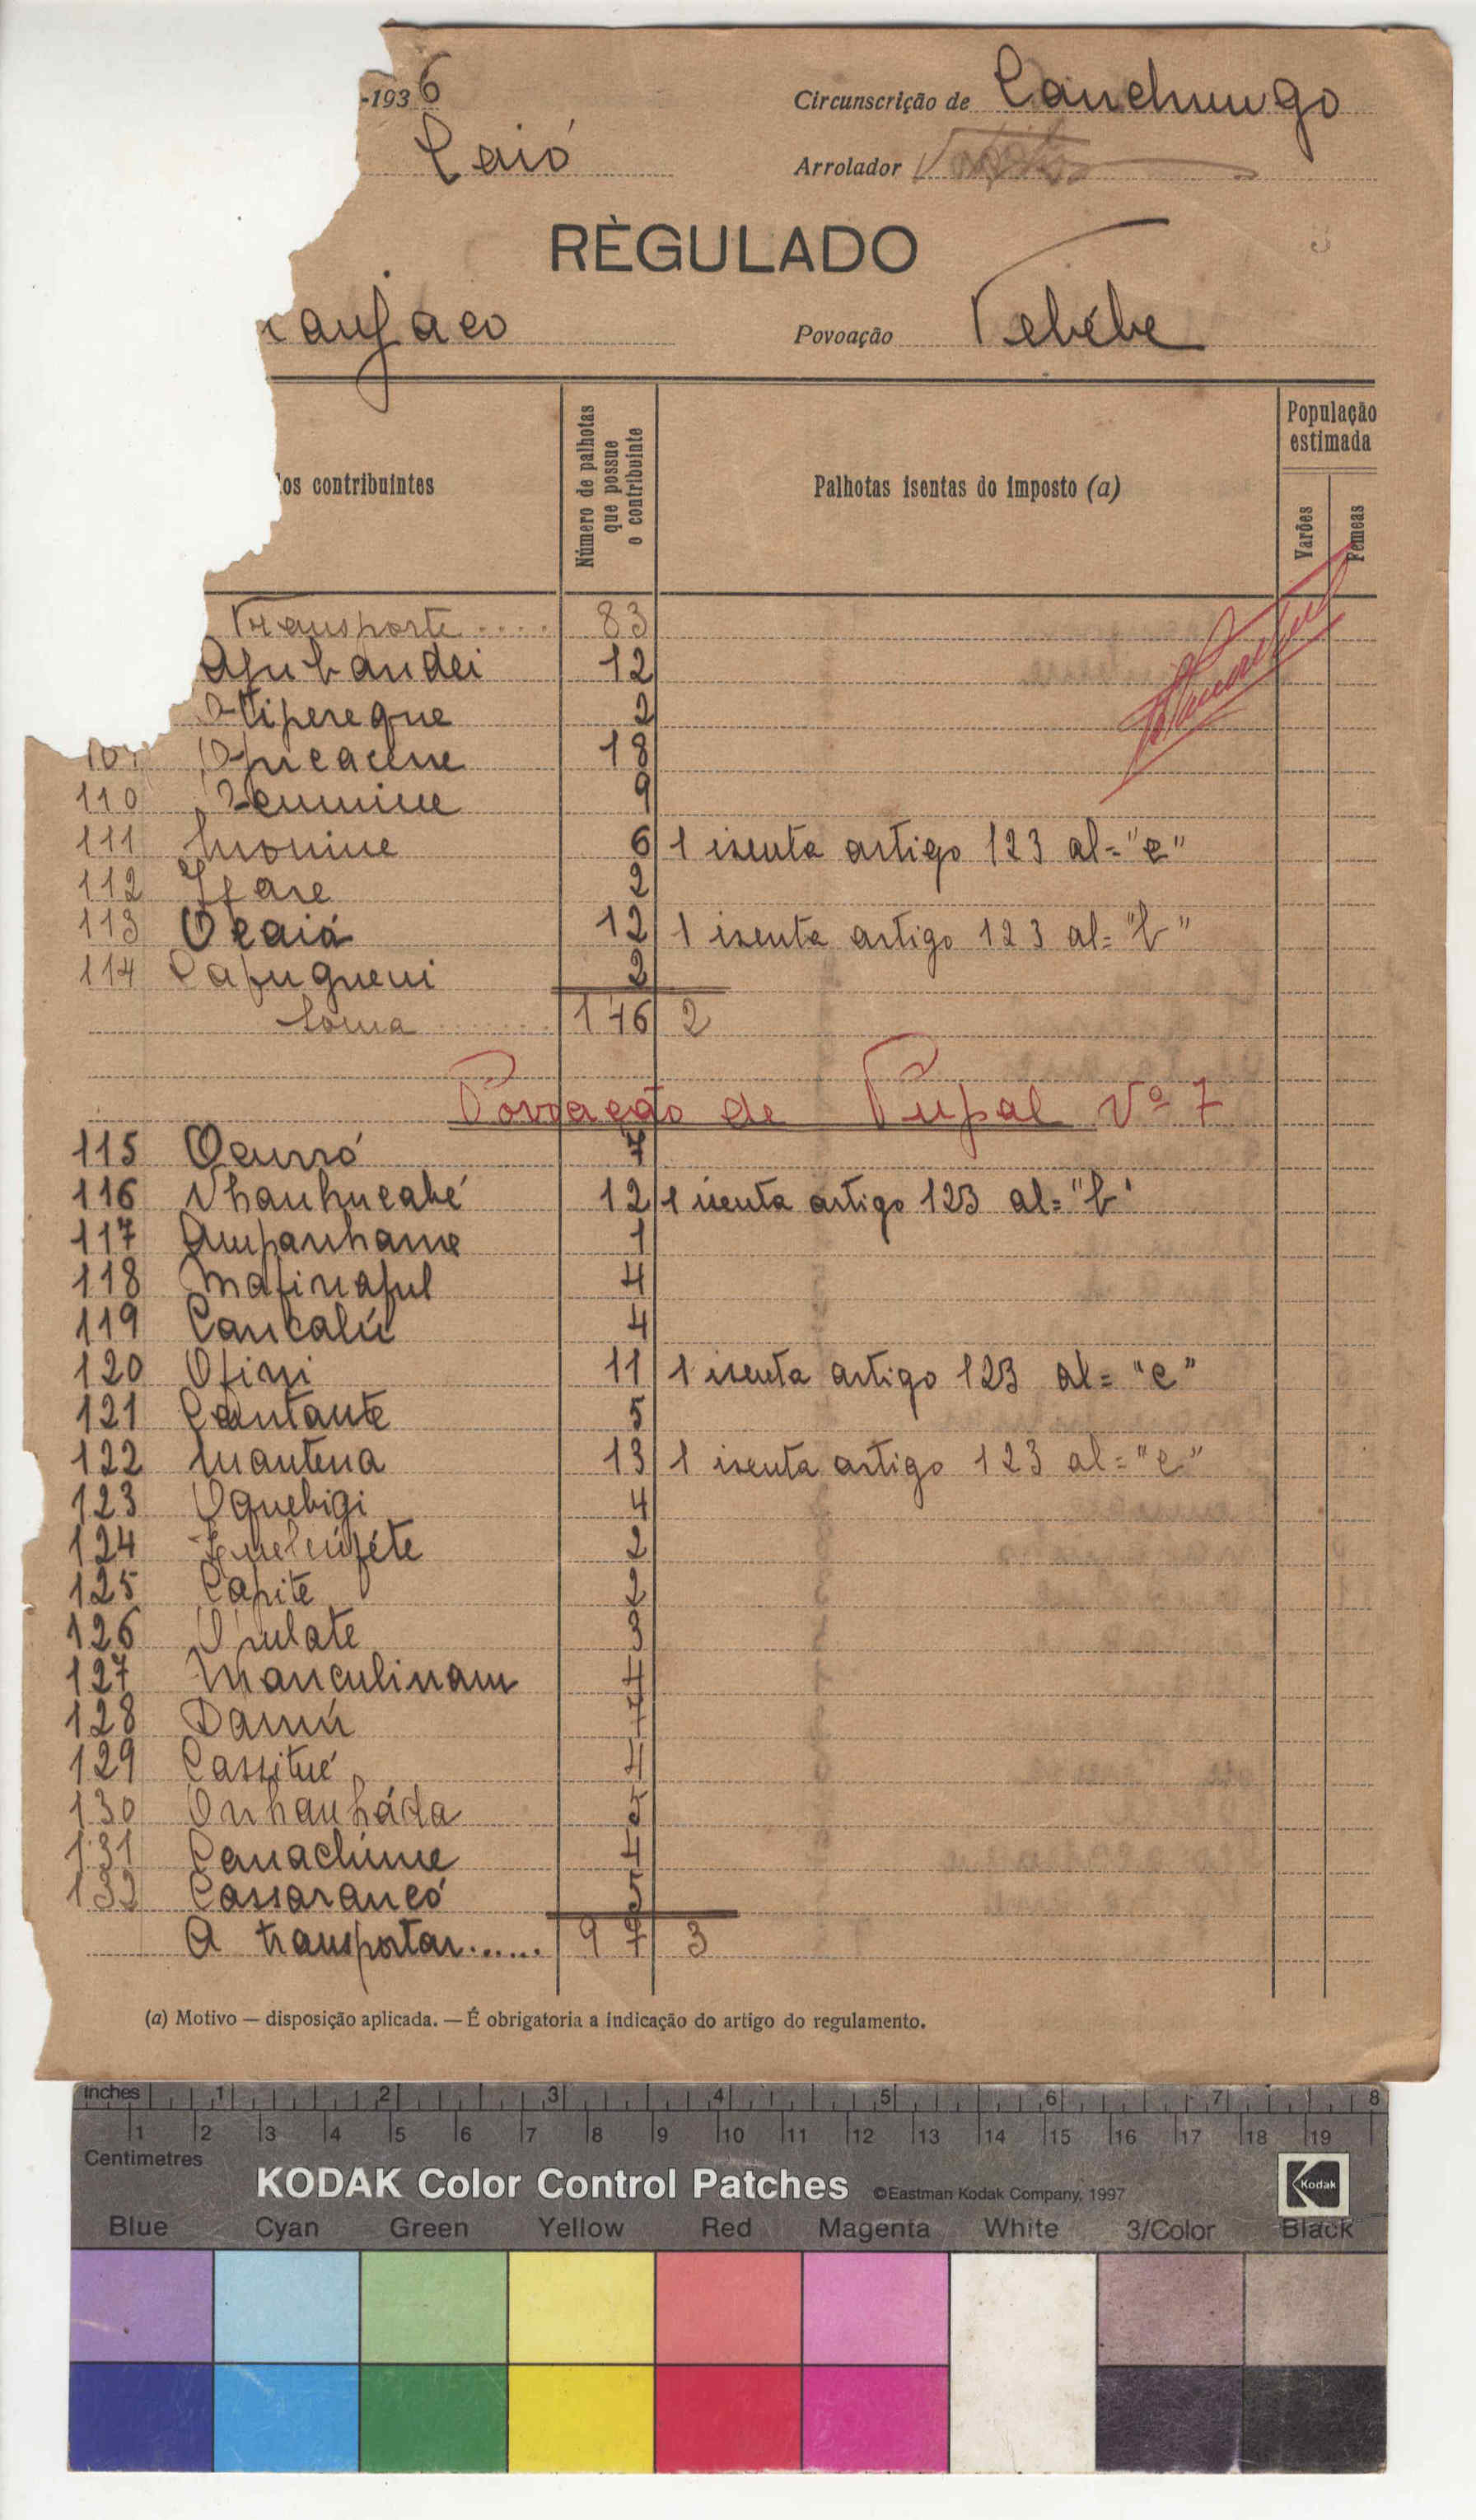 -1936
Circunscrição de Canchungo
Caió
Arrolador
RÈGULADO
anjaco
Povoação Tebébe
os contribuintes
Número de palhotas que possue o contribuinte
Palhotas isentas do imposto (a)
População estimada
Varões
Femeas
Transporte .... 83
Apubandei 12
Atipereque 2
Opucacene 18
110 9
111 6 1 isenta artigo 123 al= "e"
112 Ifare 2
113 Ocaiá 12 1 isenta artigo 123 al= "b"
114 Capugueni 2
Soma ........ 146 2
Povoação de Pupal Nº 7
115 Ocurró 7
116 Nhanhucabé 12 1 isenta artigo 123 al= "b"
117 Ampanhame 1
118 Mafinaful 4
119 Cancalú 4
120 Ofini 11 1 isenta artigo 123 al= "e"
121 Cantante 5
122 Mantena 13 1 isenta artigo 123 al= "e"
123 Oquebigi 4
124 2
125 Capite 2
126 Opulate 3
127 Manculinam 4
128 Damú 7
129 Cassitué 4
130 Onhanháda 5
131 Canachime 4
132 Cassarancó 5
A transportar...... 97 3
(a) Motivo — disposição aplicada. — É obrigatoria a indicação do artigo do regulamento.
inches 1 2 3 4 5 6 7 8
1 2 3 4 5 6 7 8 9 10 11 12 13 14 15 16 17 18 19
Centimetres
KODAK Color Control Patches ©Eastman Kodak Company, 1997 Kodak
Blue Cyan Green Yellow Red Magenta White 3/Color Black